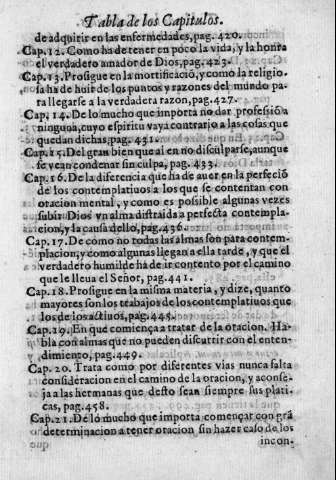 Tabla de los Capitulos.
de adquirir en las enfermedades, pag. 420.
Cap. 12. Como ha de tener en poco la vida, y la honra
el verdadero amador de Dios, pag. 423.
Cap. 13. Prosigue en la mortificaciõ, y como la religio-
sa ha de huir de los puntos y razones del mundo pa-
ra llegarse a la verdadera razon, pag. 427.
Cap. 14. De lo mucho que importa no dar professiõ a
ninguna, cuyo espiritu vaya contrario a las cosas que
quedan dichas, pag. 431.
Cap. 15. Del gran bien que ai en no disculparse, aunque
se vean condenar sin culpa, pag. 433.
Cap. 16. De la diferencia que ha de auer en la perfeciõ
de los contemplatiuos a los que se contentan con
oracion mental, y como es possible algunas vezes
subir Dios vn alma distraida a perfecta contempla-
cion, y la causa dello, pag. 436.
Cap. 17. De como no todas las almas son para contem-
placion, y como algunas llegan a ella tarde, y que el
verdadero humilde ha de ir contento por el camino
que le lleua el Señor, pag. 441.
Cap. 18. Prosigue en la misma materia, y dize, quanto
mayores son los trabajos de los contemplatiuos que
los de los actiuos, pag. 445.
Cap. 19. En que comiença a tratar de la oracion. Ha-
bla con almas que no pueden discurrir con el enten-
dimiento, pag. 449.
Cap. 20. Trata como por diferentes vias nunca falta
consideracion en el camino de la oracion, y aconse-
ja a las hermanas que desto sean siempre sus plati-
cas, pag. 458.
Cap. 21. De lo mucho que importa començar con grã
determinacion a tener oracion sin hazer caso de los
incon-